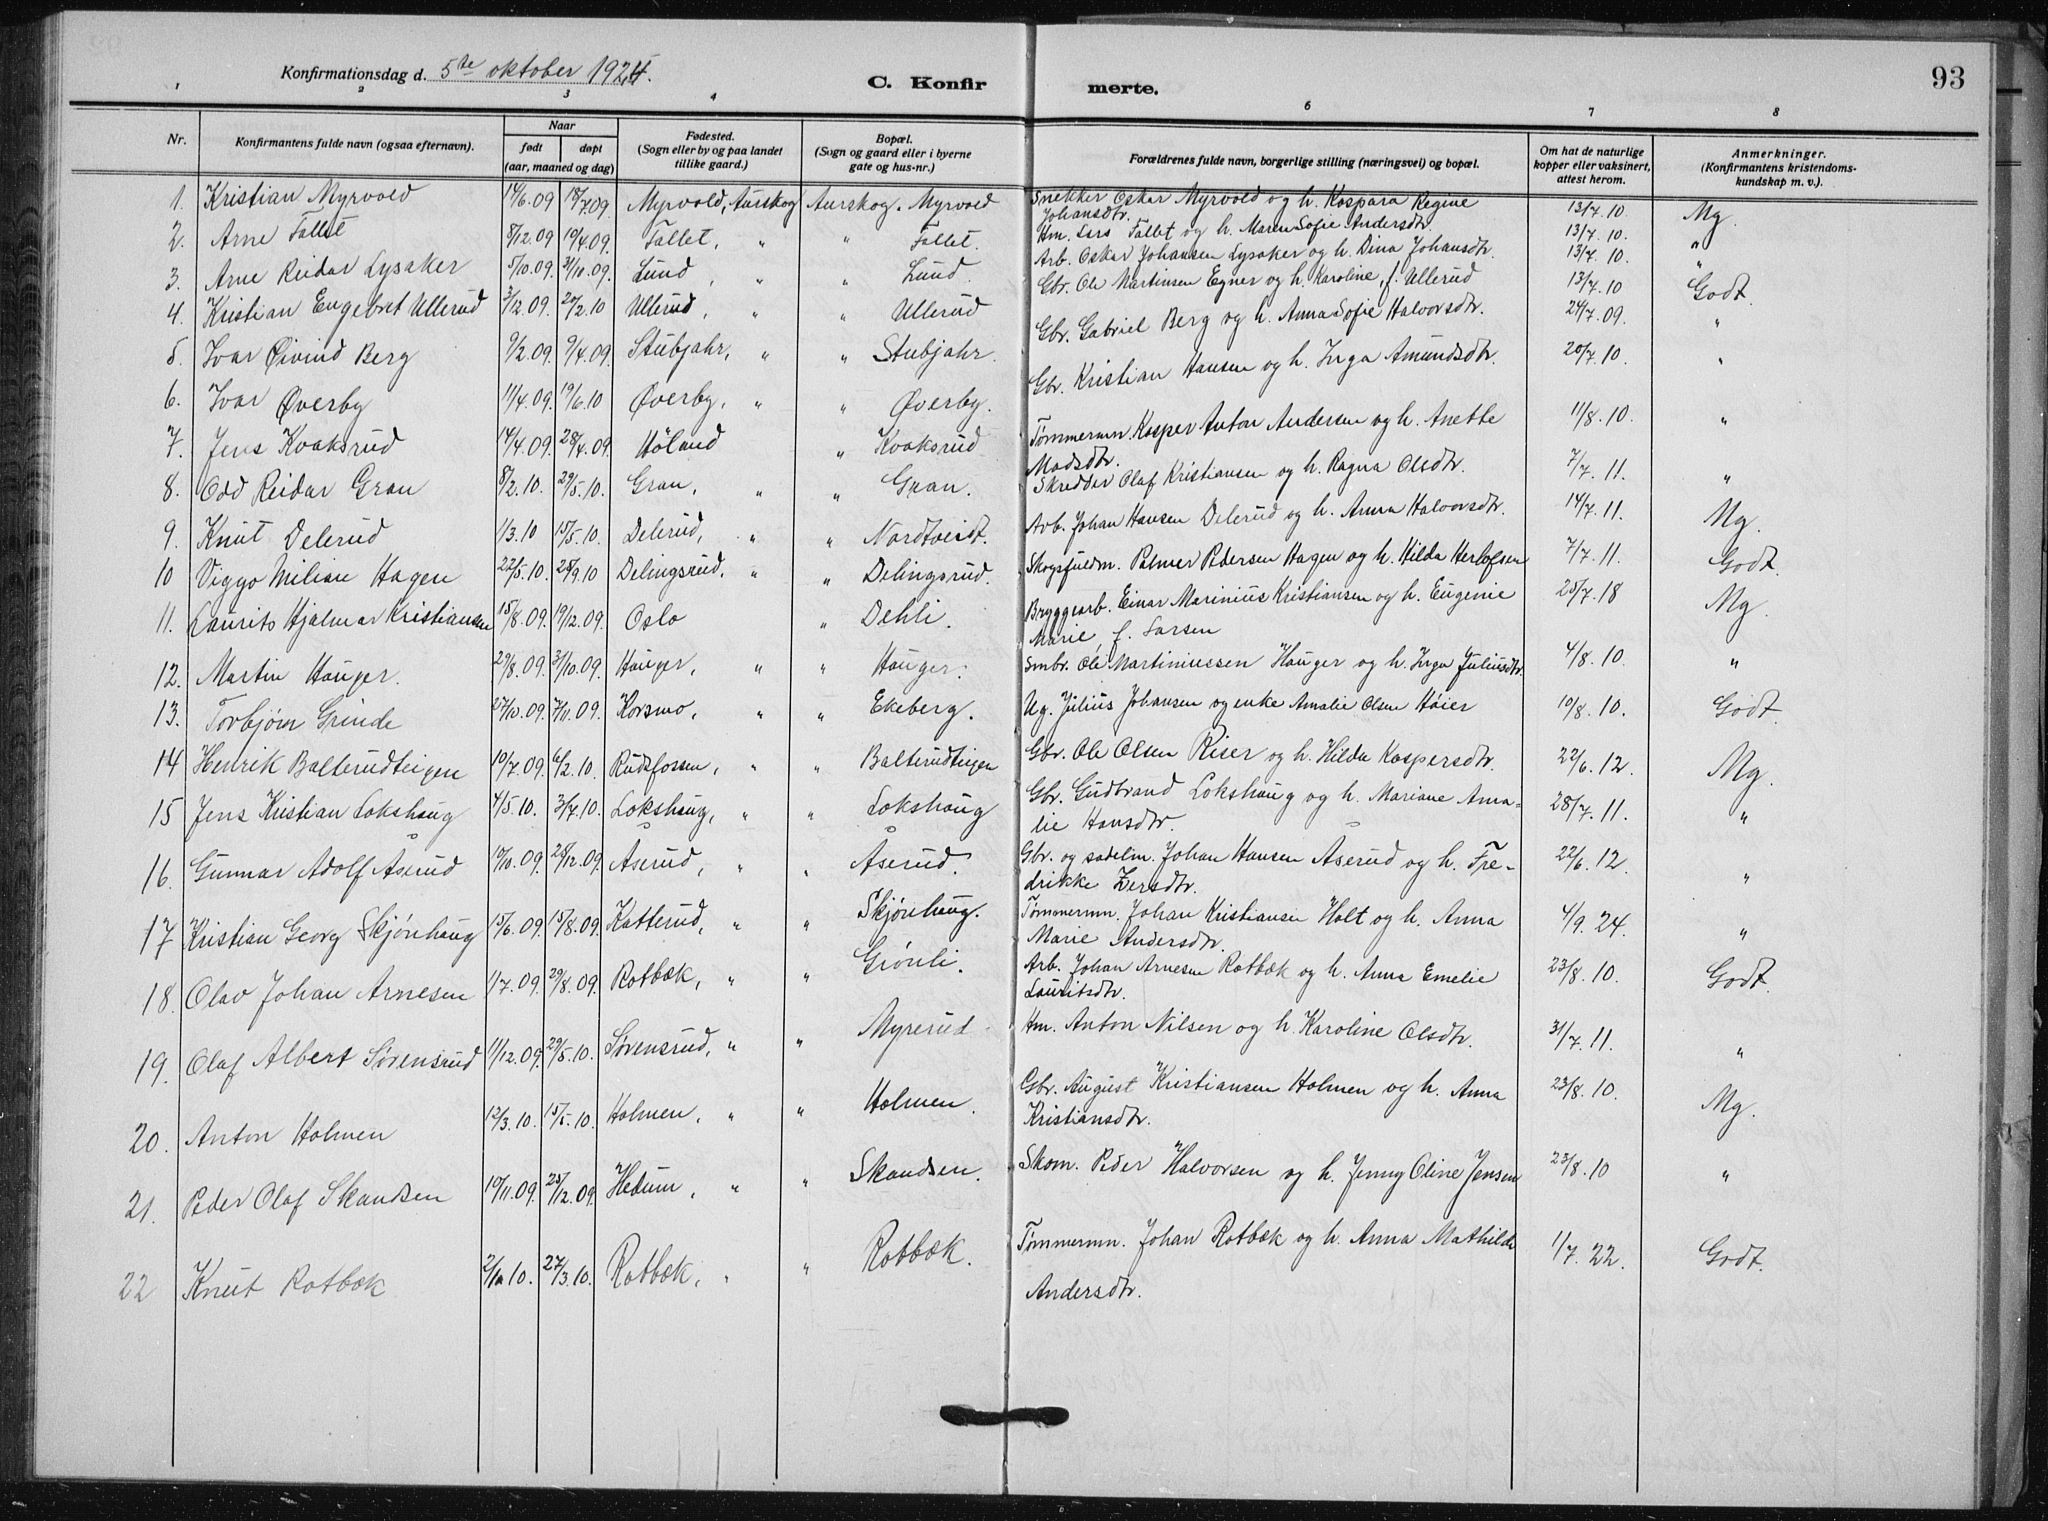 93
Konfirmationsdag d. 5te oktober 1924.
C. Konfir merte.
1 2 3 4 6 7 8
Nr. Konfirmantens fulde navn (ogsaa efternavn). Naar født døpt (aar, maaned og dag) Fødested. (Sogn eller by og paa landet tillike gaard.) Bopæl. (Sogn og gaard eller i byerne gate og hus-nr.) Forældrenes fulde navn, borgerlige stilling (næringsvei) og bopæl. Om hat de naturlige kopper eller vaksinert, attest herom. Anmerkninger. (Konfirmantens kristendomskundskap m. v.).
1. Kristian Myrvold 14/6.09 18/7.09. Myrvold, Aurskog Aurskog. Myrvold Snekker Oskar Myrvold og h. Kaspara Regine Johansdtr. 13/7.10. Mg.
2. Arne Tallet 8/12.09 19/4.09. Tallet, " " Tallet. Hm. Lars Tallet og h. Maren Sofie Andersdtr. 13/7.10. "
3. Arne Reidar Lysaker 5/10.09. 31/10.09. Lund, " " Lund. Arb. Oskar Johansen Lysaker og h. Dina Johansdtr. 13/7.10. "
4. Kristian Engebret Ullerud 3/12.09. 20/2.10 Ullerud, " " Ullerud Gbr. Ole Martinsen Egner og h. Karoline, f. Ullerud 13/7.10 Godt.
5. Ivar Øivind Berg 9/2.09. 9/4.09. Stubjahr, " " Stubjahr. Gbr. Gabriel Berg og h. Anna Sofie Halvorsdtr. 24/7.09. "
6. Ivar Øverby 11/4.09. 19/6.10 Øverby, " " Øverby. Gbr. Kristian Hansen og h. Inga Amundsdtr. 20/7.10. "
7. Jens Kvaksrud 14/4.09. 28/4.09. Høland " Kvaksrud Tømmermn. Kasper Anton Andersen og h. Anette Madsdtr. 11/8.10. "
8. Odd Reidar Gran 8/2.10. 29/5.10. Gran, " " Gran. Skredder Olaf Kristiansen og h. Ragna Olsdtr. 7/7.11. "
9. Knut Delerud 1/3.10 15/5.10. Delerud, " " Nordtveidt. Arb. Johan Hansen Delerud og h. Anna Halvorsdtr. 14/7.11. Mg.
10 Viggo Milian Hagen 22/5.10. 25/9.10 Delingsrud, " " Delingsrud. Skogsfuldm. Palmer Pedersen Hagen og h. Hilda Herlofsen 7/7.11. Godt.
11. Laurits Hjalmar Kristiansen 15/8.09. 19/12.09. Oslo " Dehli. Bryggearb. Einar Marinius Kristiansen og h. Eugenie Marie, f. Larsen 25/7.18 Mg.
12. Martin Hauger. 29/8.09. 31/10.09. Hauger, " " Hauger. Smbr. Ole Martiniussen Hauger og h. Inga Juliusdtr. 4/8.10. "
13. Torbjørn Grinde 27/10.09. 7/11.09. Korsmo, " " Ekeberg. Ug. Julius Johansen og enke Amalie Olsen Høier 10/8.10. Godt.
14 Henrik Balterudteigen 10/7.09. 6/2.10. Rudsfossen, " " Balterudteigen Gbr. Ole Olsen Riser og h. Hilda Kaspersdtr. 22/6.12. Mg.
15 Jens Kristian Lokshaug 4/5.10. 3/7.10. Lokshaug, " " Lokshaug Gbr. Gudbrand Lokshaug og h. Mariane Amalie Hansdtr. 28/7.11. "
16. Gunnar Adolf Åserud 19/10.09. 26/12.09. Åserud, " " Åserud. Gbr. og sadelm. Johan Hansen Åserud og h. Fredrikke Larsdtr. 22/6.12. "
17 Kristian Georg Skjønhaug 15/6.09. 15/8.09. Katterud, " " Skjønhaug. Tømmermn. Johan Kristiansen Holt og h. Anna Marie Andersdtr. 4/9.24. "
18. Olav Johan Arnesen 1/7.09. 29/8.09. Rotbæk, " " Grønli. Arb. Johan Arnesen Rotbæk og h. Anna Emelie Lauritsdtr. 23/8.10. Godt.
19. Olaf Albert Sørensrud 11/12.09. 29/5.10. Sørensrud, " " Myrerud. Hm. Anton Nilsen og h. Karoline Olsdtr. 31/7.11. "
20. Anton Holmen 12/3.10. 15/5.10. Holmen, " " Holmen. Gbr. August Kristiansen Holmen og h. Anna Kristiansdtr. 23/8.10. Mg.
21. Peder Olaf Skandsen 19/11.09. 25/12.09. Hebum, " " Skandsen. Skom. Peder Halvorsen og h. Jenny Oline Jensen 23/8.10 "
22 Knut Rotbæk 2/10 10. 27/3.10. Rotbæk, " " Rotbæk. Tømmermn. Johan Rotbæk og h. Anna Mathilde Andersdtr. 1/7.22. Godt.